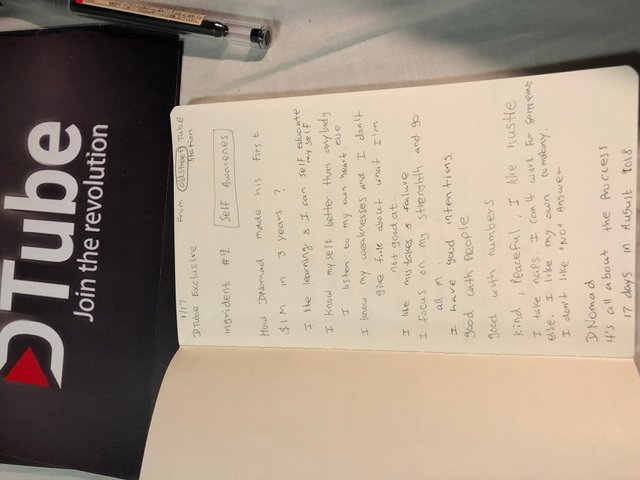 DTube
Join the revolution
1/17
DTube Exclusive From Tube
Station
ingrident #2 Self Awarenes
How DNomad made his first
$1M in 3 years ?
I like learning & I can self educate
my self
I know myself better than anybody
I listen to my own heart else
I know my weaknesses and I don't
give about what I'm
not good at.
I like mistakes & failure
I focus on my strenghth and go
all in
I have good intentions
good with people
good with numbers
kind, peaceful, I like hustle
I take naps. I can't work for someone
else. I like my own company.
I don't like "No" Answer
DNomad
it's all about the process
17 days in August 2018